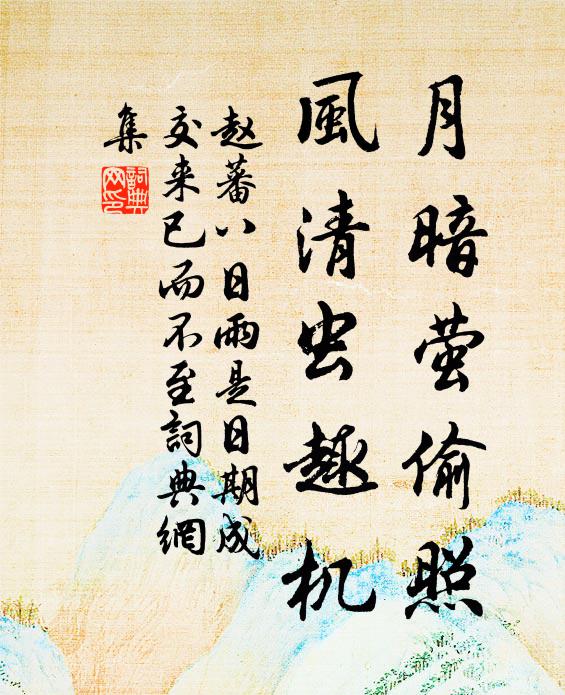 月暗萤偷照
風清虫趣机
赵蕃八日雨是日期成
父来已而不至詞典網
集
詞典网印